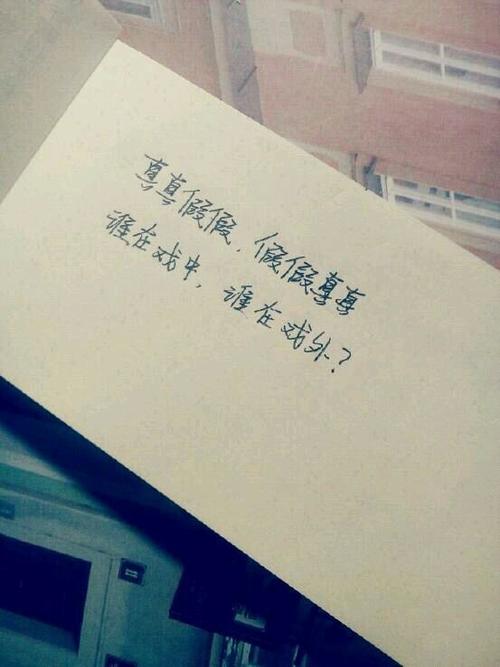 真真假假，假假真真
谁在戏中，谁在戏外？